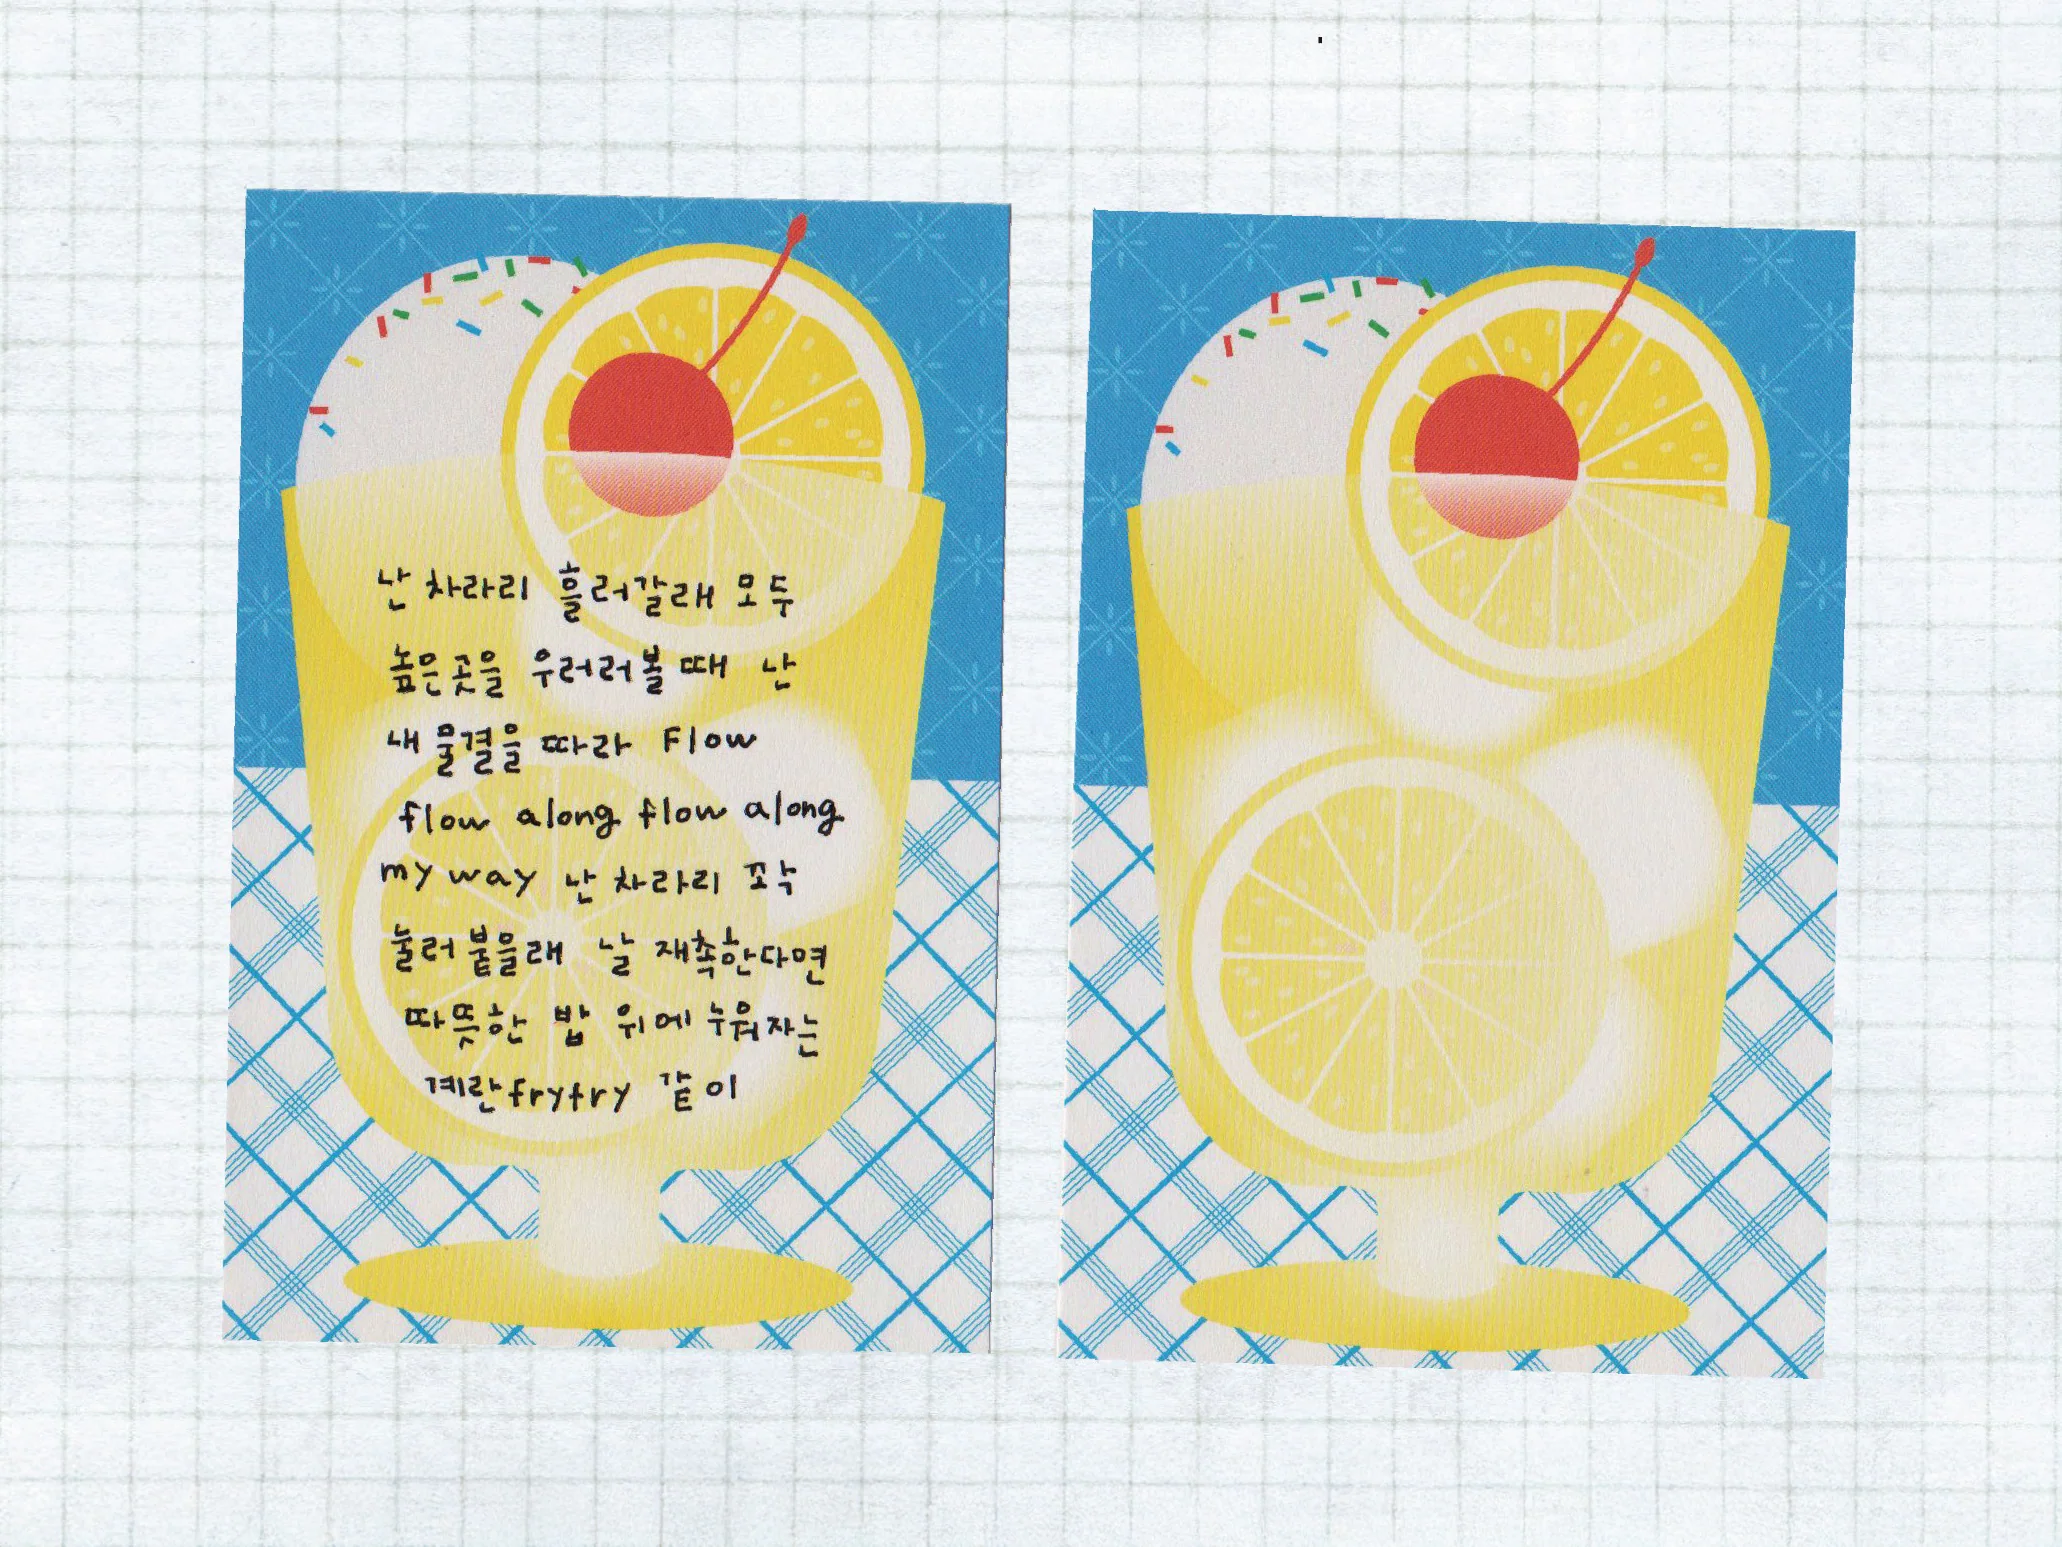 난 차라리 흘러갈래 모두
높은곳을 우러러볼 때 난
내 물결을 따라 Flow
flow along flow along
my way 난 차라리 꼬악
눌러붙을래 날 재촉한다면
따뜻한 밥 위에 누워자는
계란fryfry 같이